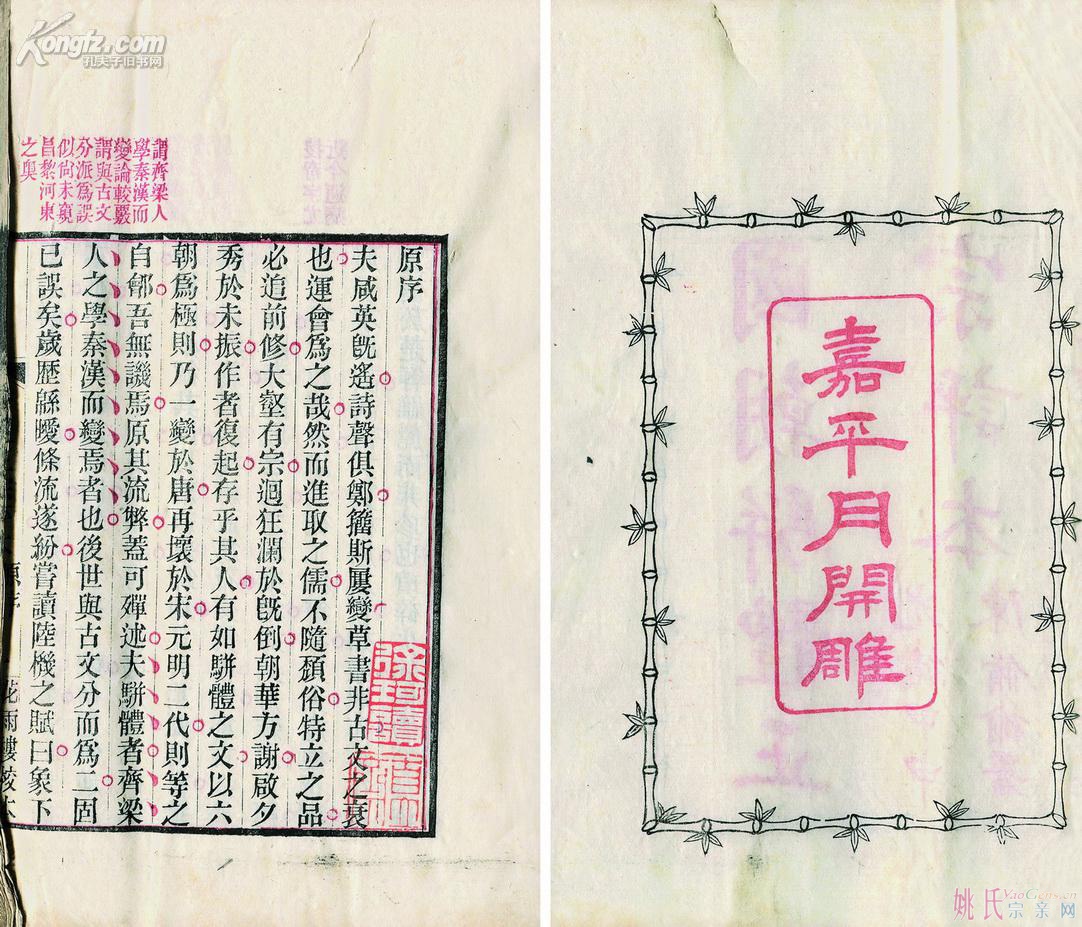 Kongfz.com
孔夫子旧书网
謂齊梁人
學秦漢而
變論較覈
謂與古文
分派爲誤
似尙未窺
昌黎河東
之奧
原序
夫咸英旣遙詩聲俱鄭籒斯屢變草書非古文之衰
也運會爲之哉然而進取之儒不隨頽俗特立之品
必追前修大壑有宗迴狂瀾於旣倒朝華方謝啟夕
秀於未振作者復起存乎其人有如駢體之文以六
朝爲極則乃一變於唐再壞於宋元明二代則等之
自鄶吾無譏焉原其流弊蓋可殫述夫駢體者齊梁
人之學秦漢而變焉者也後世與古文分而爲二固
已誤矣歲歷緜曖條流遂紛嘗讀陸機之賦曰象下
原序
花雨樓校本
嘉平月開雕
姚氏宗亲网